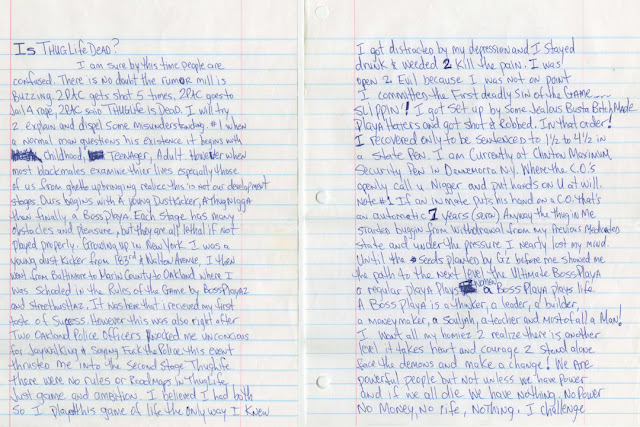 Is THUG Life DEAD?
I am sure by this time people are
confused. There is no doubt the rumor mill is
Buzzing. 2PAC gets shot 5 times. 2PAC goes to
Jail 4 rape, 2PAC said THUGLife is DEAD. I will try
2 explain and dispel some misunderstanding. #1 when
a normal man questions his existence it begins with
childhood, Teenager, Adult. However when
most blackmales examine thier lives especially those
of us from ghetto upbringing realice this is not our development
stages. Ours begins with A young DustKicker, A Thug Nigga
then finally a BossPlaya. Each stage has many
obstacles and pleasure, but they are all lethal if not
played properly. Growing up in New York I was a
young dust kicker from 183rd & Walton Avenue, I then
went from Baltimore to Marin County to Oakland where I
was schooled in the Rules of the Game by BossPlayaz
and streethustlaz. It was here that i recieved my first
taste of Success. However this was also right after
Two Oakland Police Officers knocked me unconcious
for Jaywalking & saying Fuck the Police. this event
thrusted me into the second Stage Thuglife
there were no rules or Roadmaps in Thuglife
Just game and ambition. I believed I had both
So I played this game of life the only way I knew
I got distracted by my depression and I stayed
drunk & weeded 2 Kill the pain. I was
open 2 Evil because I was not on point
I committed the First deadly Sin of the GAME....
SLIPPIN'! I got set up by some Jealous Busta BitchMade
Playa Haters and got shot & Robbed. In that order!
I recovered only to be sentenced to 1½ to 4½ in
a state Pen. I am Currently at Clinton Maximum
Security Pen in Dannemora N.Y. Where the C.O.'s
openly call u Nigger and put hands on U at will.
Note #1 If an inmate puts his hand on a C.O. that's
an automatic 7 years (seven) Anyway the thug in Me
started buggin from withdrawal from my Previous Medicated
state and under the pressure I nearly lost my mind.
Until the seeds planted by G'z before me showed me
the path to the next level the Ultimate BossPlaya
a regular playa plays women a Boss Playa plays life.
A Boss Playa is a thinker, a leader, a builder,
a moneymaker, a souljah, a teacher and Most of all a Man!
I want all my homiez 2 realize there is another
level it takes heart and courage 2 stand alone
face the demons and make a change! We are
powerful people but not unless we have power
and if we all die we have nothing. No Power
No Money, No life, Nothing. I challenge